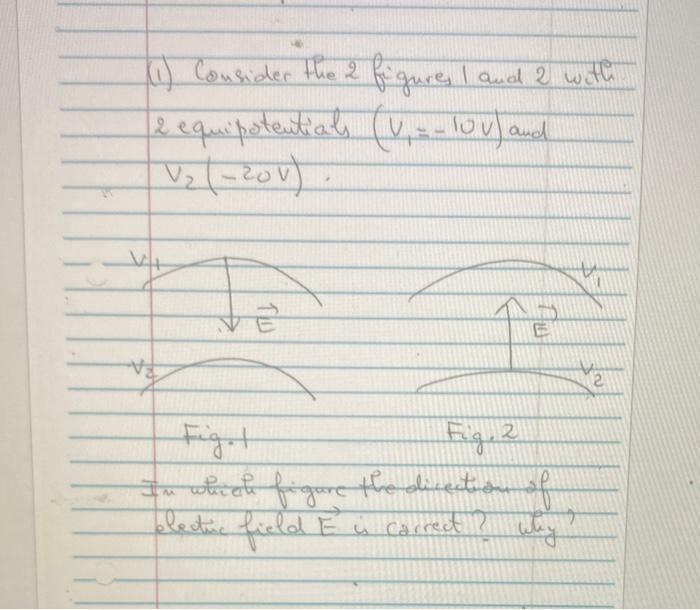 (1) Consider the 2 figures 1 and 2 with
2 equipotentials (V₁ = -10V) and
V₂ (-20V).
V₁
V₁
E⃗
E⃗
V₂
V₂
Fig. 1
Fig. 2
In which figure the direction of
electric field E⃗ is correct? why?